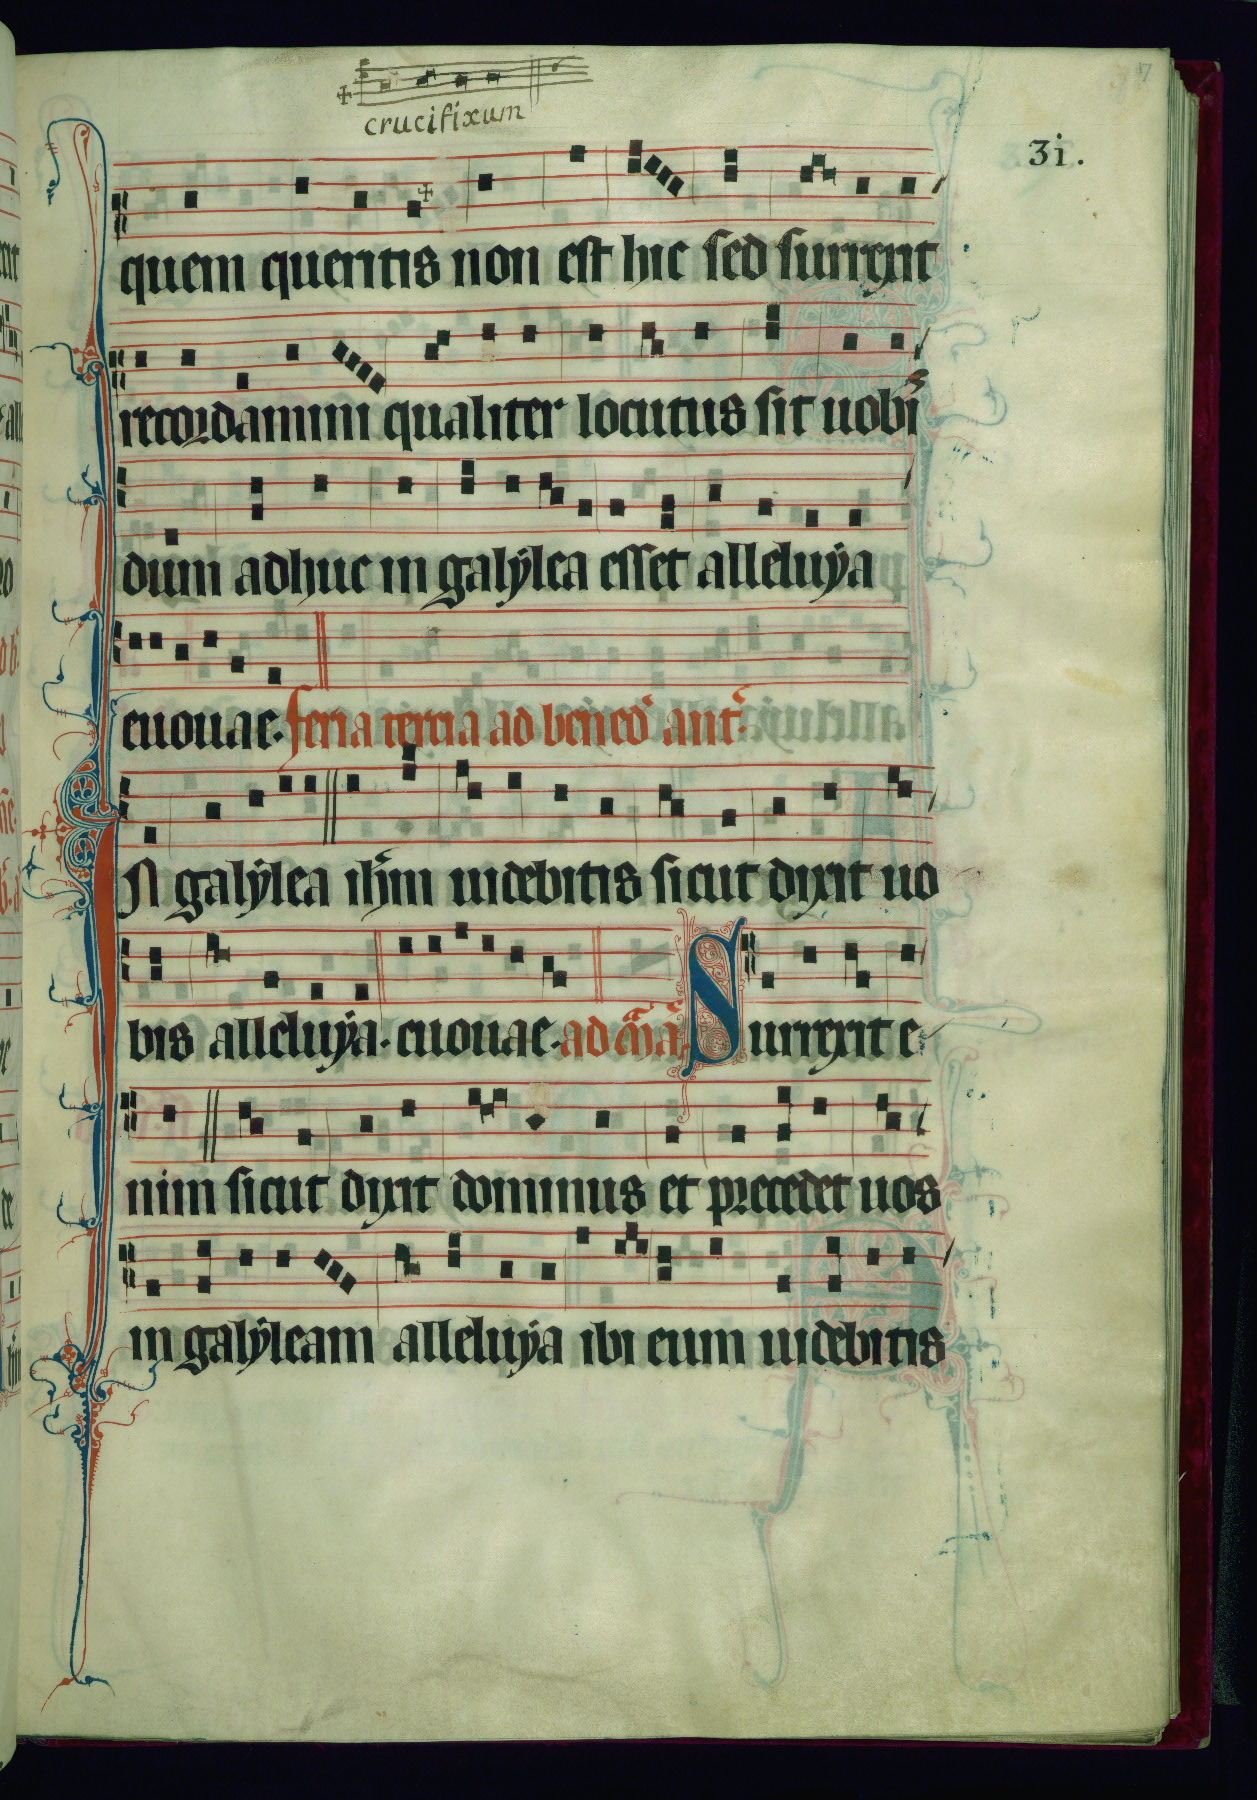 crucifixum
3i.
quem queritis non est hic sed surrexit
recordamini qualiter locutus sit uobis
dum adhuc in galylea esset alleluya
euouae. feria tercia ad bened ant.
N galylea ihm uidebitis sicut dixit uo
bis alleluya. euouae. ad ma. Surrexit e
nim sicut dixit dominus et precedet uos
in galyleam alleluya ibi eum uidebitis